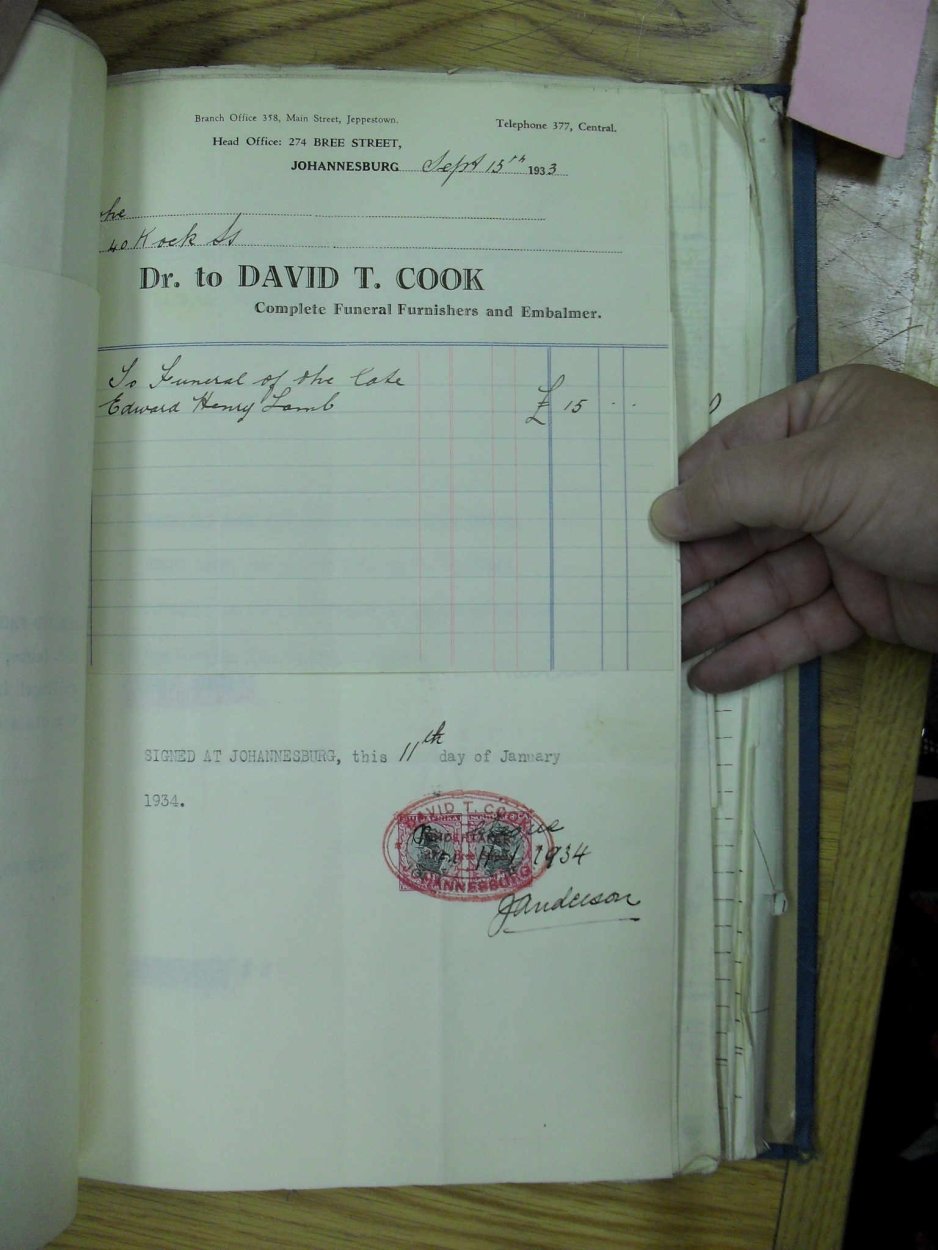 Branch Office 358, Main Street, Jeppestown.
Telephone 377, Central.
Head Office: 274 BREE STREET,
JOHANNESBURG Sept 15th 1933
40 Kock St
Dr. to DAVID T. COOK
Complete Funeral Furnishers and Embalmer.
To Funeral of the late
Edward Henry Lamb £ 15 - -
SIGNED AT JOHANNESBURG, this 11th day of January
1934.
DAVID T. COOK
1934
JOHANNESBURG
JAnderson